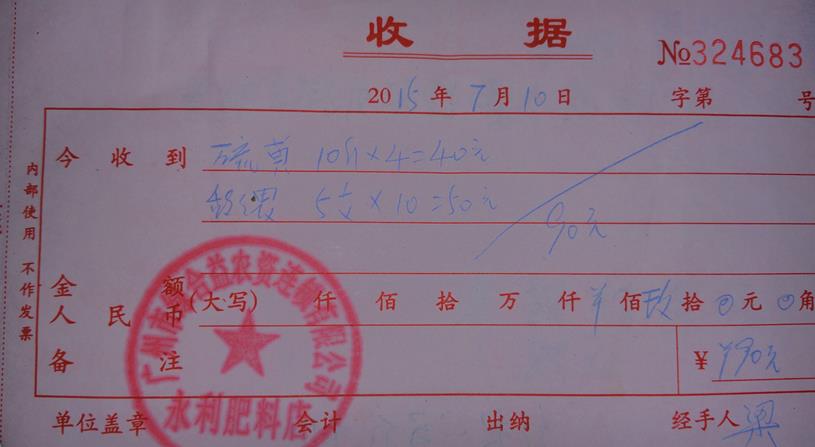 收 据
№324683
2015年7月10日 字第 号
今收到 硫黄 10斤×4=40元
5支×10=50元
90元
金额(大写) 仟佰拾万仟 佰玖拾0元0角
人民币
备注 ¥90元
单位盖章 会计 出纳 经手人 梁
内部使用 不作发票
永利肥料店